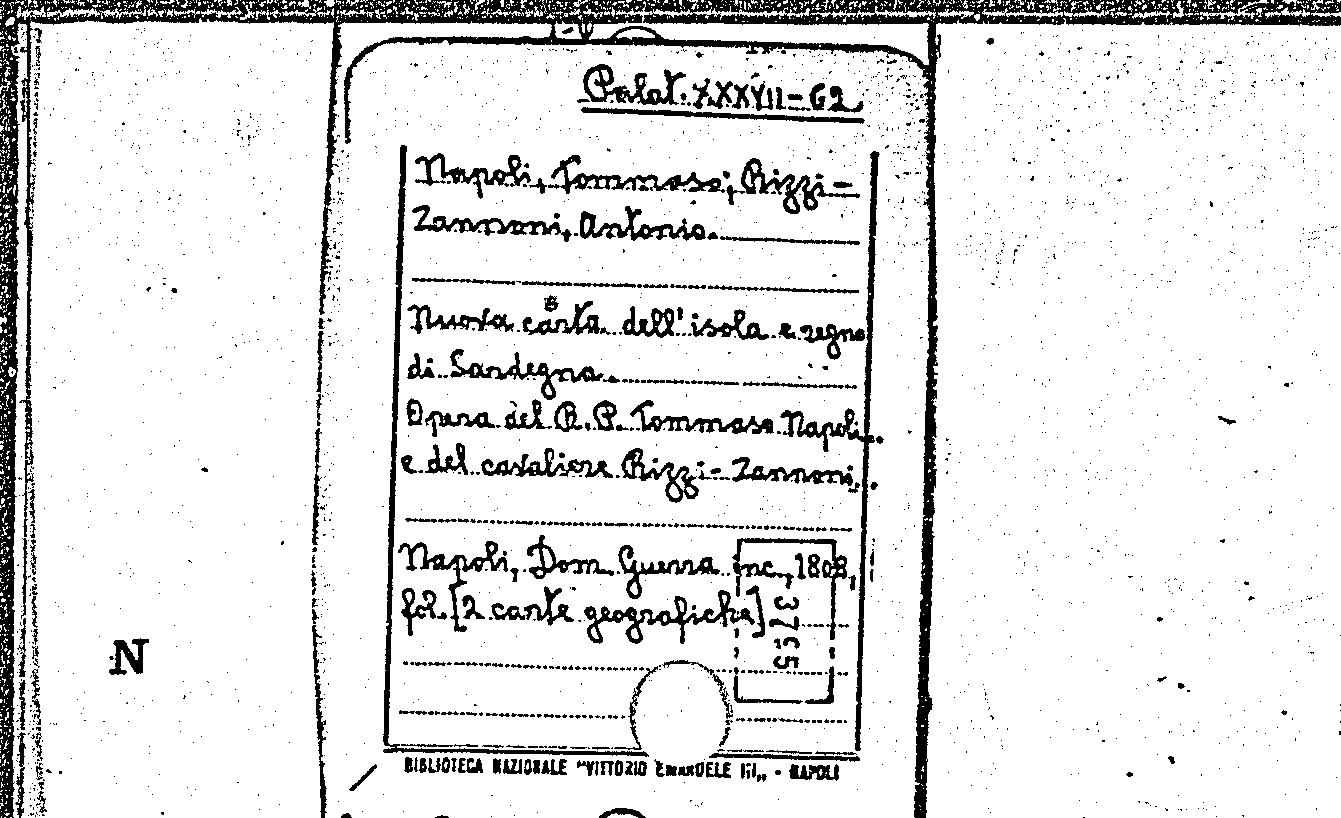 Palat. XXXVII-62
Napoli, Tommaso; Rizzi-
Zannoni, Antonio.
Nuova carta dell'isola e regno
di Sardegna.
Opera del R. P. Tommaso Napoli..
e del cavaliere Rizzi-Zannoni...
Napoli, Dom. Guerra inc., 1808,
fol. [2 carte geografiche]
N
BIBLIOTECA NAZIONALE "VITTORIO EMANUELE III„ - NAPOLI